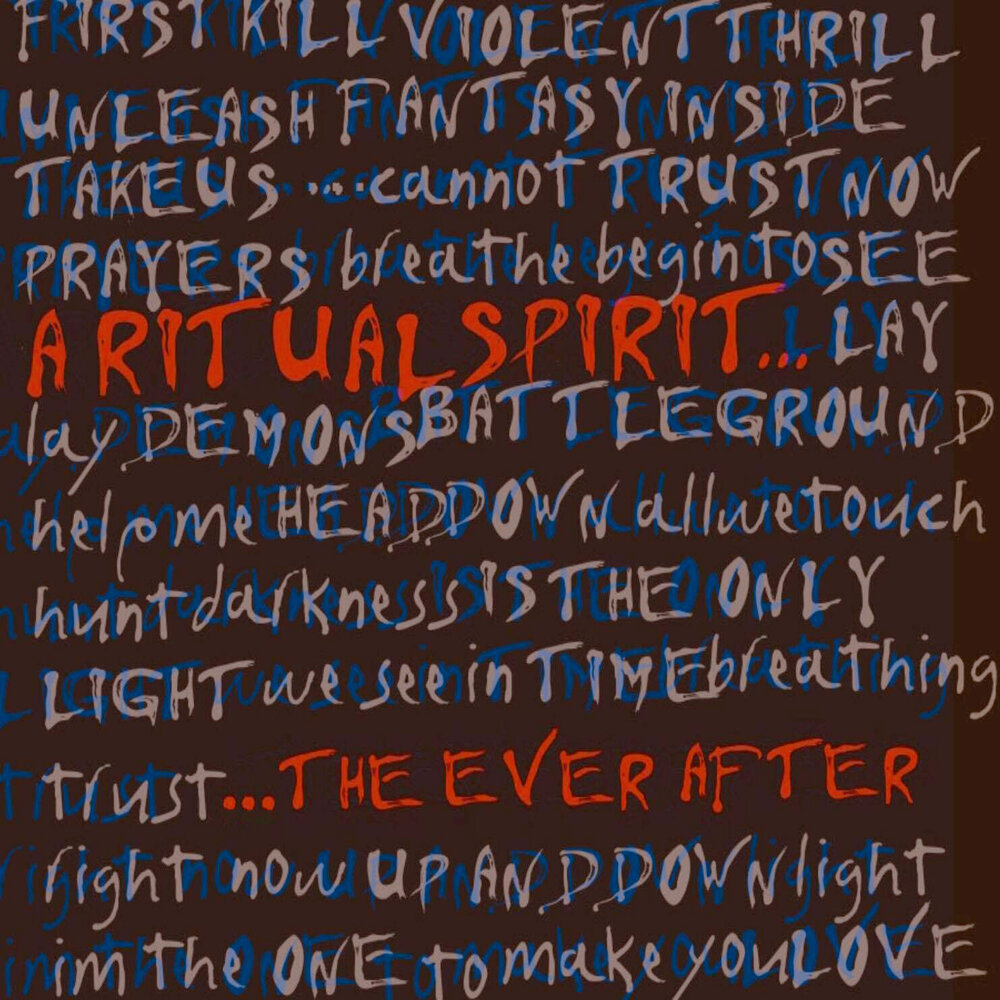 FIRST KILL VIOLENT THRILL
UNLEASH FANTASY INSIDE
TAKE US ... cannot TRUST NOW
PRAYERS breathe begin to SEE
A RITUAL SPIRIT... LAY
lay DEMONS BATTLEGROUND
help me HEAD DOWN all we touch
hunt darkness IS THE ONLY
LIGHT we see in TIME breathing
trust ...THE EVER AFTER
right now UP AND DOWN light
im the ONE to make you LOVE